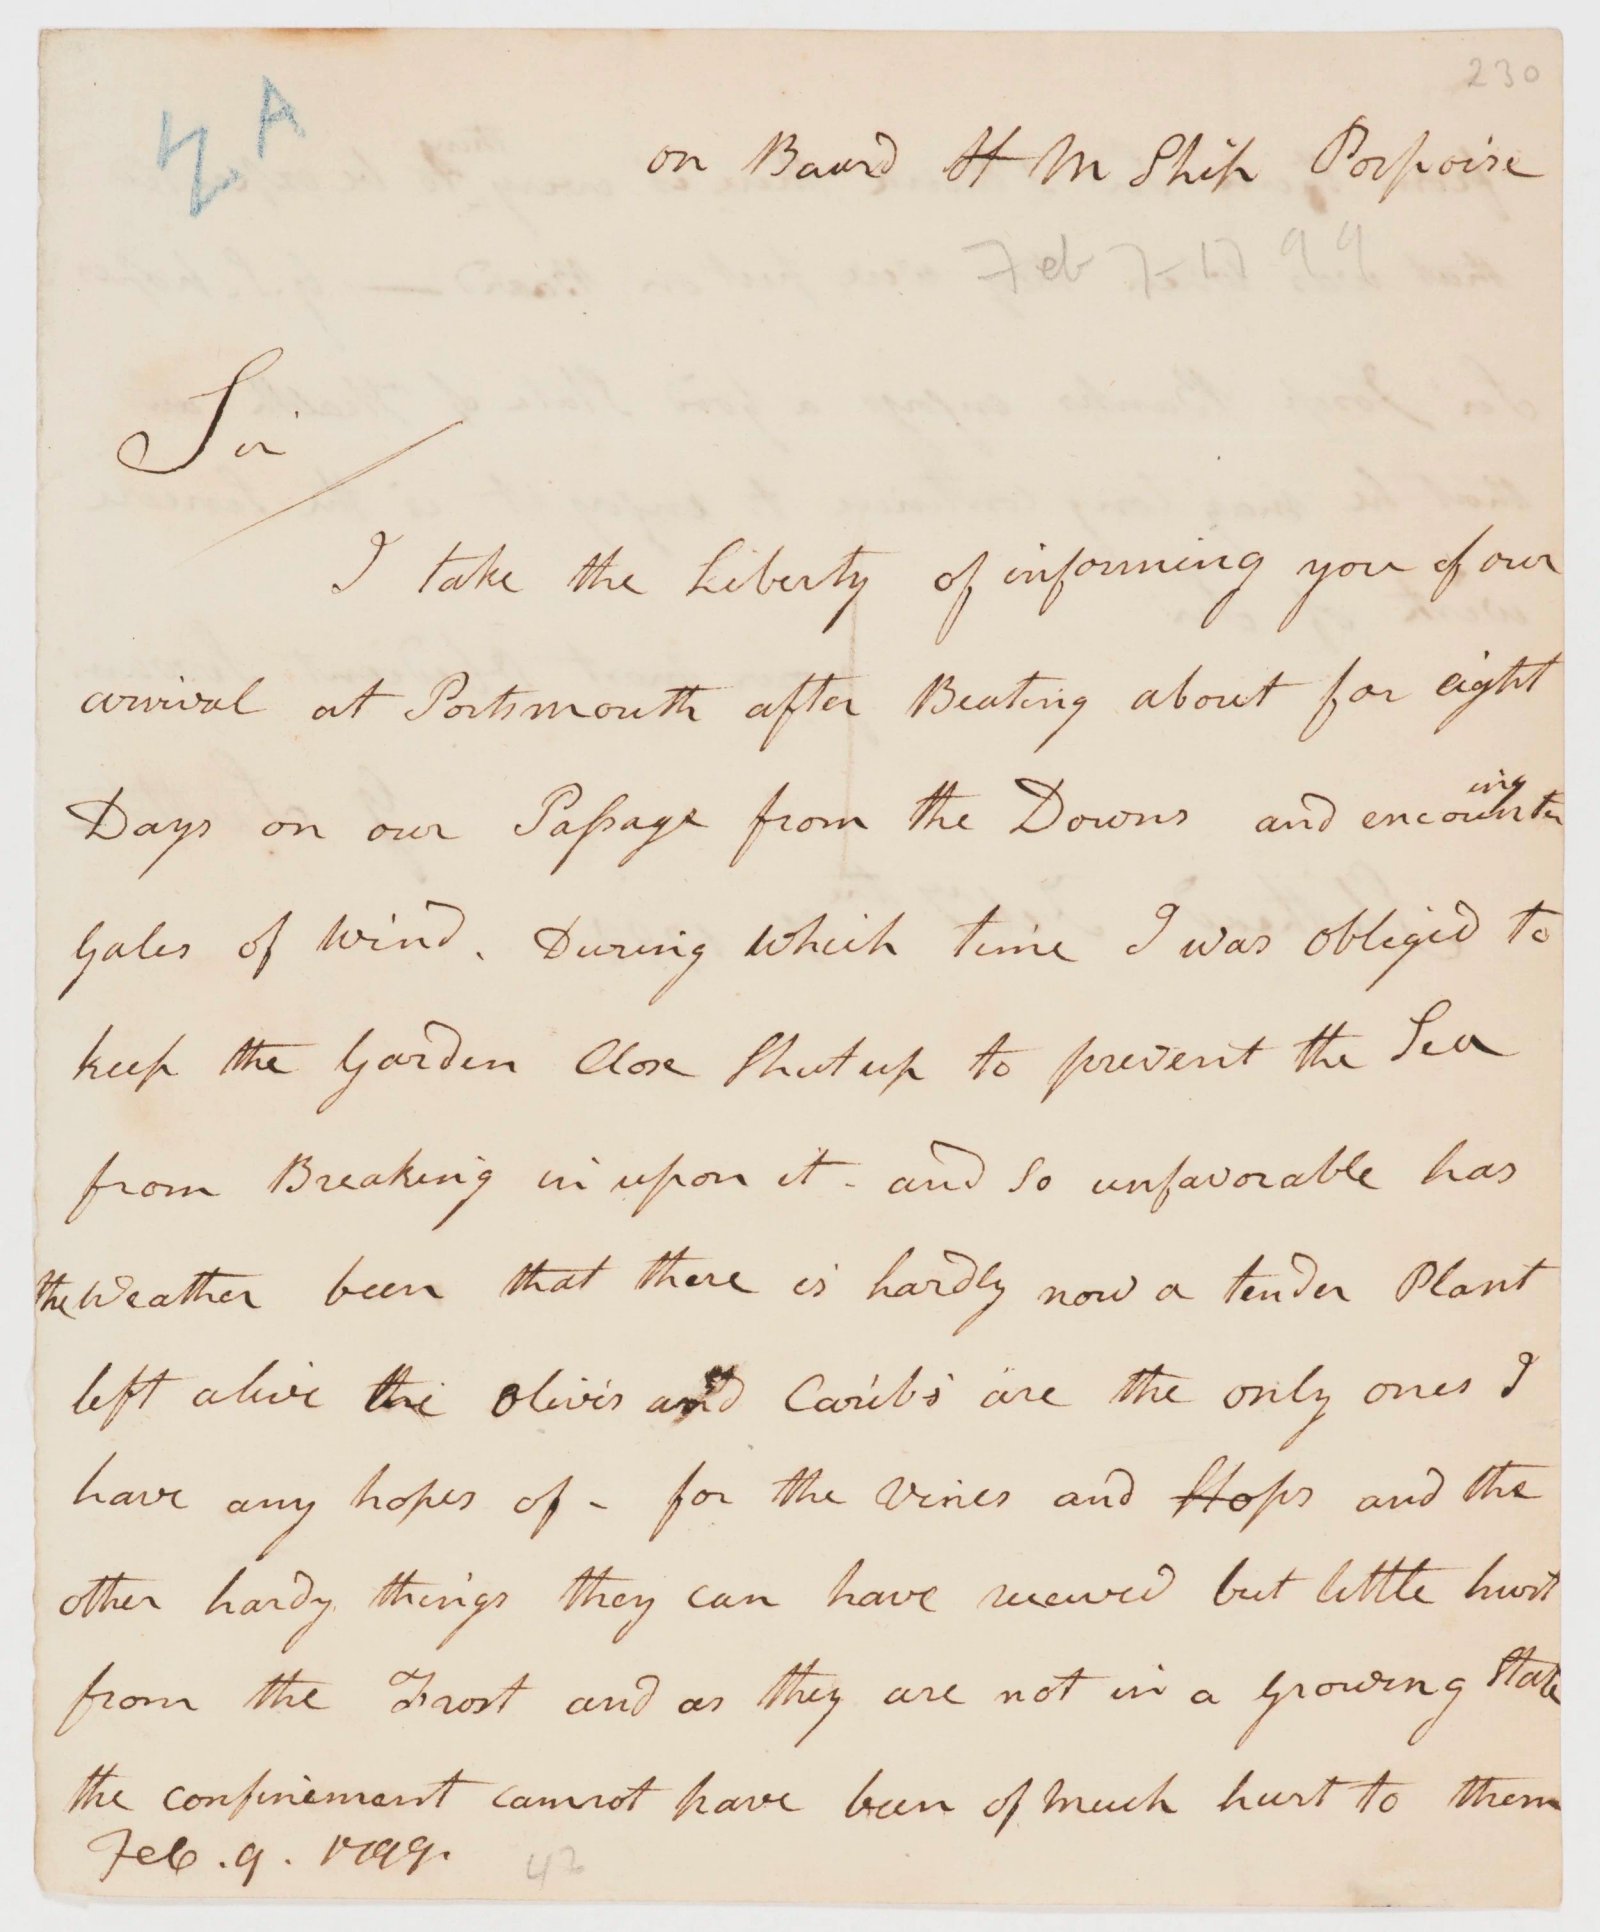 230
A
on Board H M Ship Porpoise
Feb 7-1799
Sir
I take the Liberty of informing you of our
arrival at Portsmouth after Beating about for eight
Days on our Passage from the Downs and encountering
Gales of Wind. During which time I was obliged to
keep the Garden Close Shut up to prevent the Sea
from Breaking in upon it - and So unfavorable has
the Weather been that there is hardly now a tender Plant
left alive the olives and Carib's are the only ones I
have any hopes of - for the Vines and Hops and the
other hardy things they can have received but little hurt
from the Frost and as they are not in a Growing State
the confinement cannot have been of Much hurt to them
Feb. 9. 1799.
42